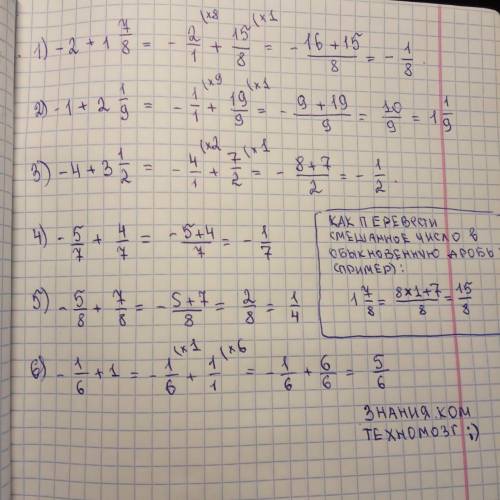 1) -2 + 1 7/8 = - 2/1 (x8 + 15/8 (x1 = - 16+15/8 = - 1/8.
2) -1 + 2 1/9 = - 1/1 (x9 + 19/9 (x1 = - 9+19/9 = 10/9 = 1 1/9
3) -4 + 3 1/2 = - 4/1 (x2 + 7/2 (x1 = - 8+7/2 = - 1/2.
4) - 5/7 + 4/7 = -5+4/7 = - 1/7
5) - 5/8 + 7/8 = - 5+7/8 = 2/8 = 1/4
6) - 1/6 + 1 = - 1/6 (x1 + 1/1 (x6 = - 1/6 + 6/6 = 5/6
КАК ПЕРЕВЕСТИ
СМЕШАННОЕ ЧИСЛО В
ОБЫКНОВЕННУЮ ДРОБЬ
(ПРИМЕР):
1 7/8 = 8x1+7/8 = 15/8
ЗНАНИЯ.КОМ
ТЕХНОМОЗГ ;)